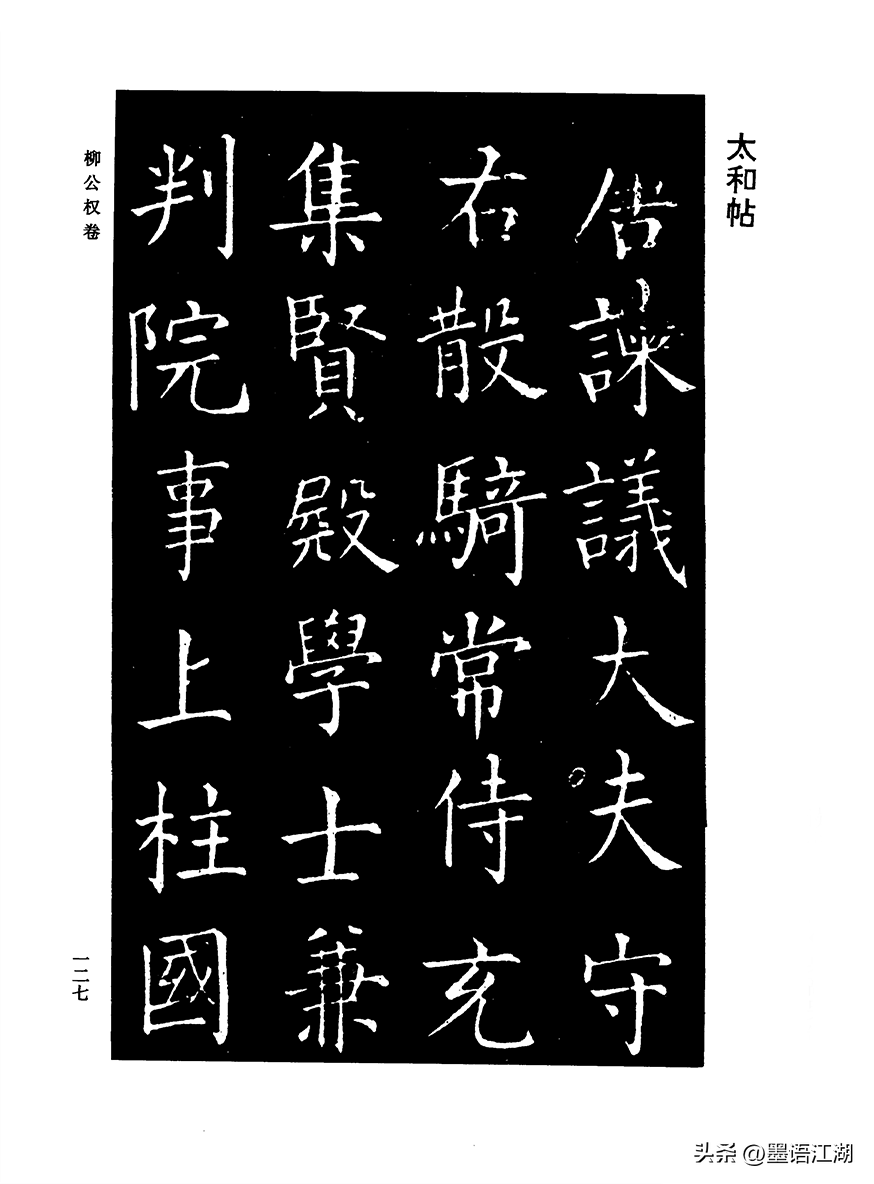 太和帖
諫議大夫守
右散騎常侍充
集賢殿學士兼
判院事上柱國
柳公权卷
一二七
头条 @墨语江湖